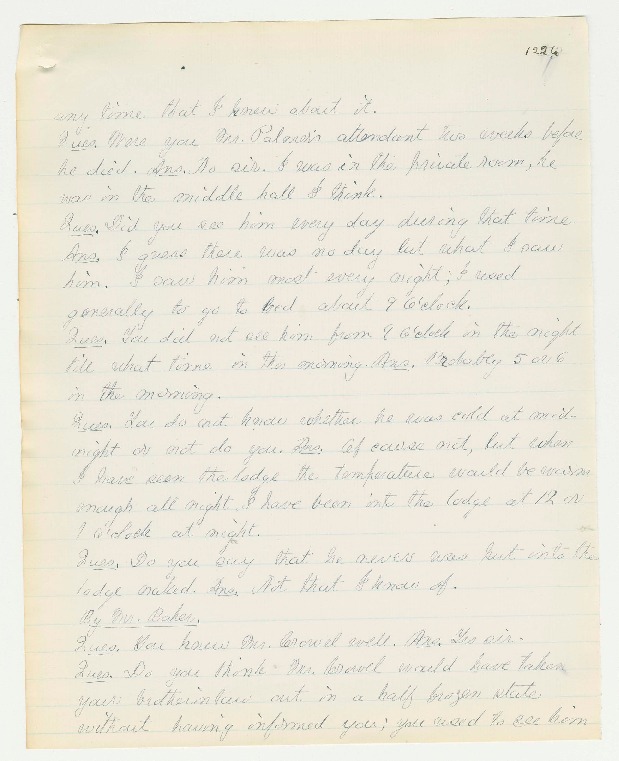 1226
any time that I knew about it.
Ques. Were you Mr. Palmer's attendant two weeks before
he died. Ans. No sir. I was in the private room, he
was in the middle hall I think.
Ques. Did you see him every day during that time
Ans. I guess there was no day but what I saw
him. I saw him most every night; I used
generally to go to bed about 9 O'clock.
Ques. You did not see him from 9 O'clock in the night
till what time in the morning. Ans. Probably 5 or 6
in the morning.
Ques. You do not know whether he was cold at mid-
night or not do you. Ans. Of course not, but when
I have seen the lodge the temperature would be warm
enough all night. I have been into the lodge at 12 or
1 o'clock at night.
Ques. Do you say that he never was put into the
lodge naked. Ans. Not that I know of.
By Mr. Baker.
Ques. You knew Mr. Crowel well. Ans. Yes sir.
Ques. Do you think Mr. Crowel would have taken
your brotherinlaw out in a half frozen state
without having informed you; you used to see him